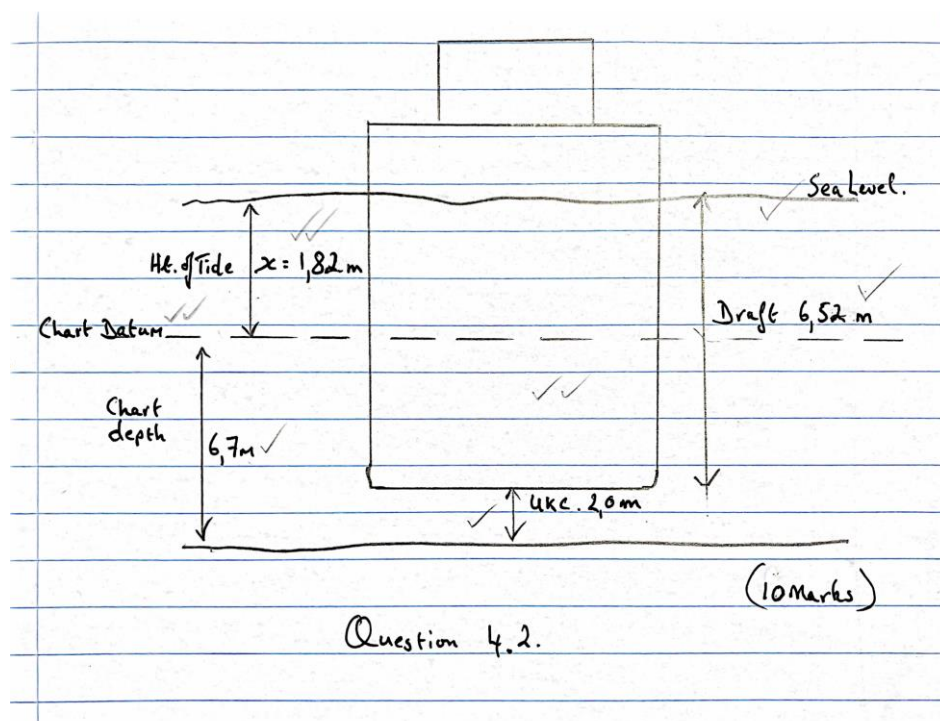 Sea Level.
Ht. of Tide x = 1,82 m
Draft 6,52 m
Chart Datum
Chart
depth
6,7m
UKC. 2,0m
(10 Marks)
Question 4.2.